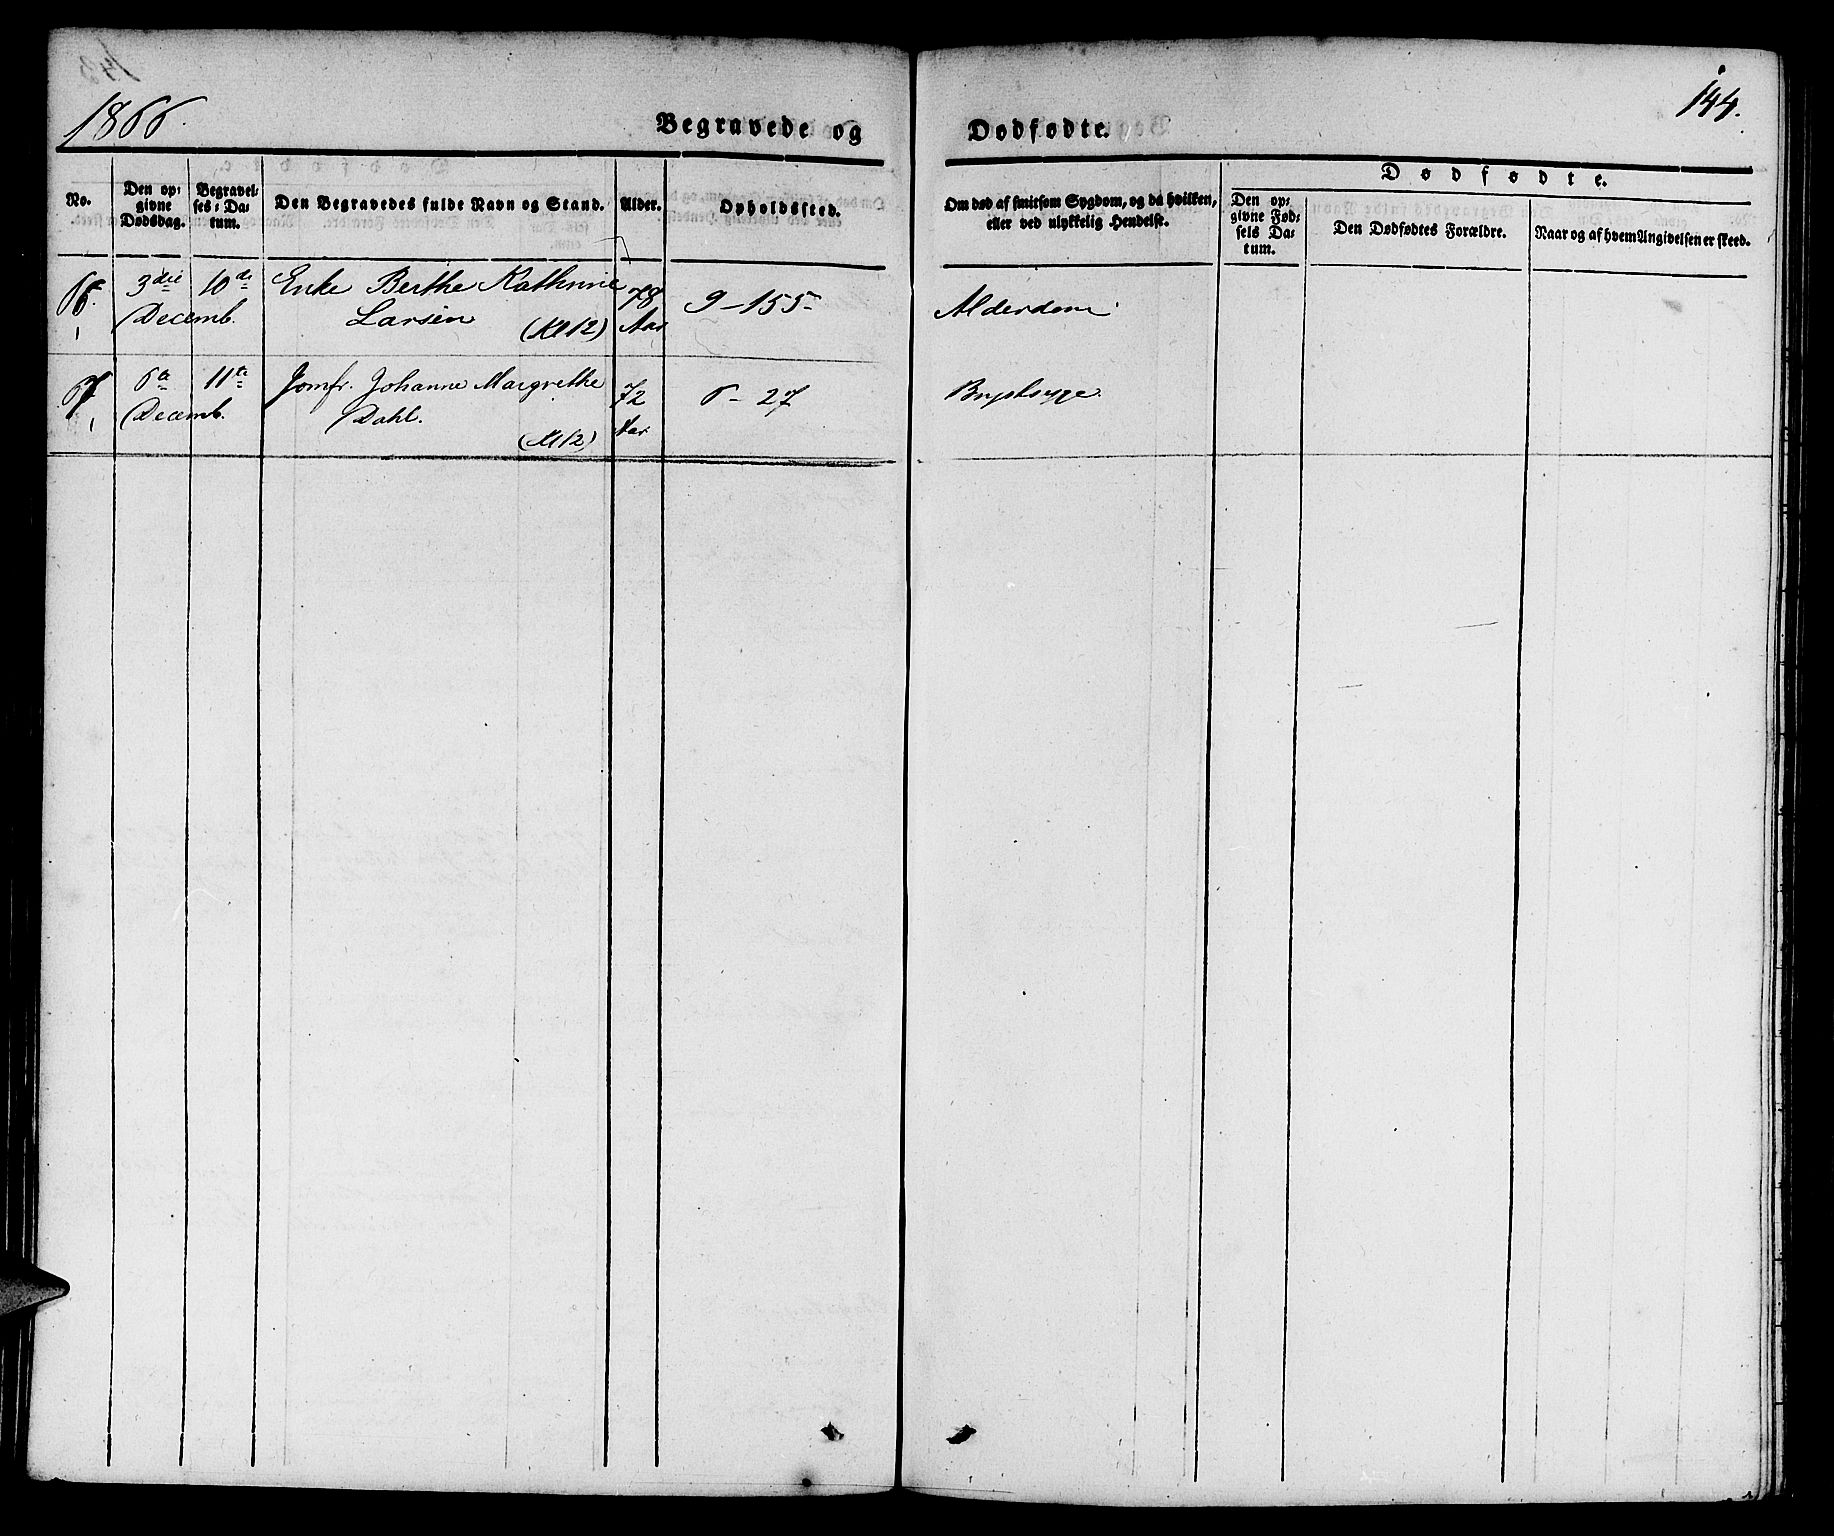 1866.
144.
Begravede og Dødfødte.
No.
Den op-
givne
Dødsdag.
Begravel-
ses-Da-
tum.
Den Begravedes fulde Navn og Stand.
Alder.
Opholdssted.
Om død af smitsom Sygdom, og da hvilken,
eller ved ulykkelig Hendelse.
Dødfødte.
Den op-
givne Fød-
sels Da-
tum.
Den Dødfødtes Forældre.
Naar og af hvem Angivelsen er skeed.
66. 3die 10de Enke Berthe Kathrine 78 9-155- Alderdom
Decemb. Larsen (Kl 12) Aar
67 6te 11te Jomfr. Johanne Margrethe 72 6-27 Brystsyge
Decemb. Dahl. (Kl 12) Aar